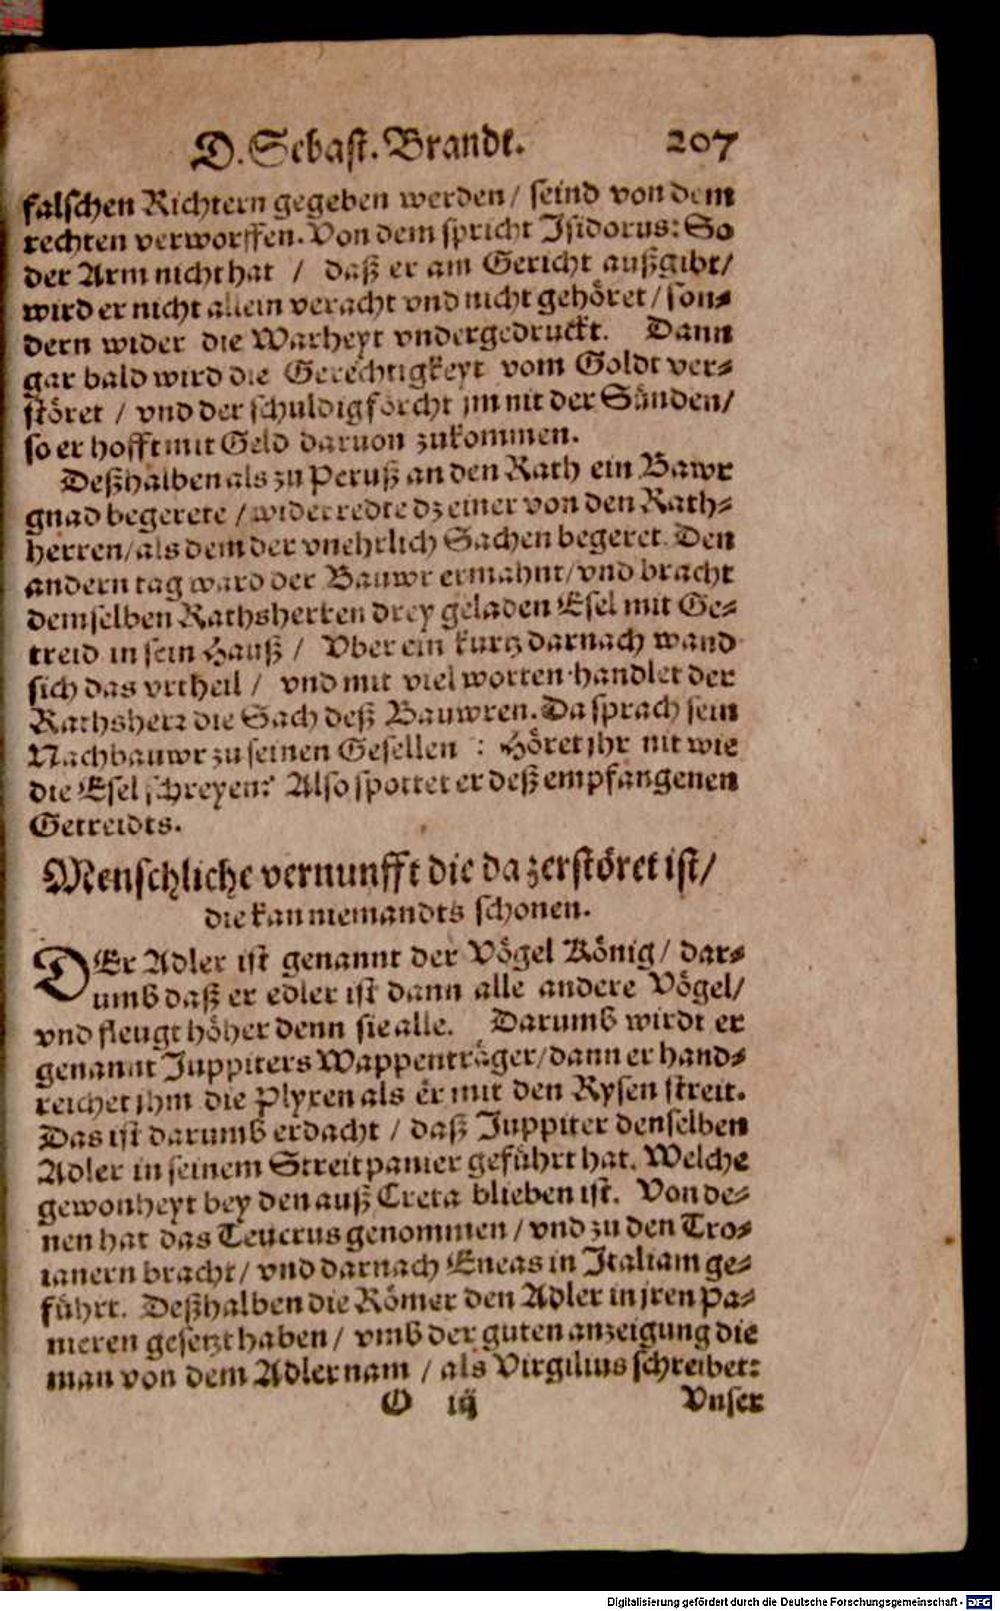 D. Sebast. Brandt. 207
falschen Richtern gegeben werden / seind von dem
rechten verworffen. Von dem spricht Isidorus: So
der Arm nicht hat / daß er am Gericht außgibt/
wird er nicht allein veracht vnd nicht gehöret / son-
dern wider die Warheyt vndergedruckt. Dann
gar bald wird die Gerechtigkeyt vom Goldt ver-
störet / vnd der schuldig förcht jm nit der Sünden/
so er hofft mit Geld daruon zukommen.
Deßhalben als zu Peruß an den Rath ein Bawr
gnad begerete / widerredte dz einer von den Rath-
herren/als dem der vnehrlich Sachen begeret. Den
andern tag ward der Bauwr ermahnt/vnd bracht
demselben Rathsherren drey geladen Esel mit Ge-
treid in sein Hauß / Vber ein kurtz darnach wand
sich das vrtheil / vnd mit viel worten handlet der
Rathsherr die Sach deß Bauwren. Da sprach sein
Nachbauwr zu seinen Gesellen : Höret jhr nit wie
die Esel schreyen? Also spottet er deß empfangenen
Getreidts.
Menschliche vernunfft die da zerstöret ist/
die kan niemandts schonen.
DEr Adler ist genannt der Vögel König/ dar-
umb daß er edler ist dann alle andere Vögel/
vnd fleugt höher denn sie alle. Darumb wirdt er
genannt Juppiters Wappenträger/dann er hand-
reichet jhm die Plyxen als er mit den Rysen streit.
Das ist darumb erdacht / daß Juppiter denselben
Adler in seinem Streitpanier geführt hat. Welche
gewonheyt bey den auß Creta blieben ist. Von de-
nen hat das Teucrus genommen / vnd zu den Tro-
ianern bracht/ vnd darnach Eneas in Italiam ge-
führt. Deßhalben die Römer den Adler in jren Pa-
nieren gesetzt haben/ vmb der guten anzeigung die
man von dem Adler nam / als Virgilius schreibet:
O iij Vnser
Digitalisierung gefördert durch die Deutsche Forschungsgemeinschaft - DFG